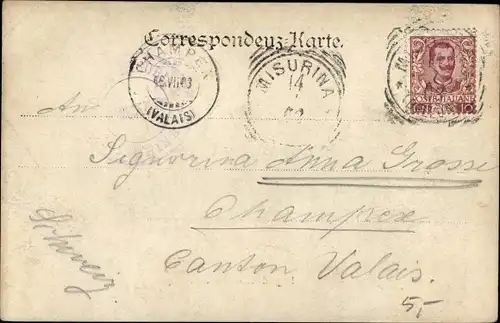 Correspondenz-Karte.
CHAMPEX
VII 03
(VALAIS)
MISURINA
14
POSTE ITALIANE
An
Signorina Anna Grosse
Champex
Canton Valais.
Schweiz
5,-